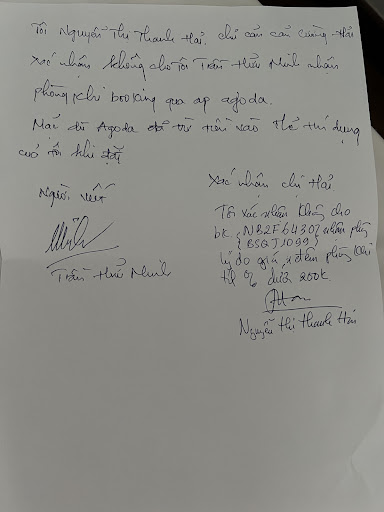 Tôi Nguyễn Thị Thanh Hải, chủ căn Cường Hải
Xác nhận không cho tôi Trần Hữu Minh nhận
phòng khi booking qua ap agoda.
Mặc dù Agoda đã trừ tiền vào thẻ tín dụng
của tôi khi đặt
Người viết
Trần Hữu Minh
Xác nhận chị Hải
Tôi xác nhận không cho
bk (NB2F6430) nhận phòng
(BSQJ1099)
lý do giá phòng khi
dưới 200k.
Nguyễn Thị Thanh Hải